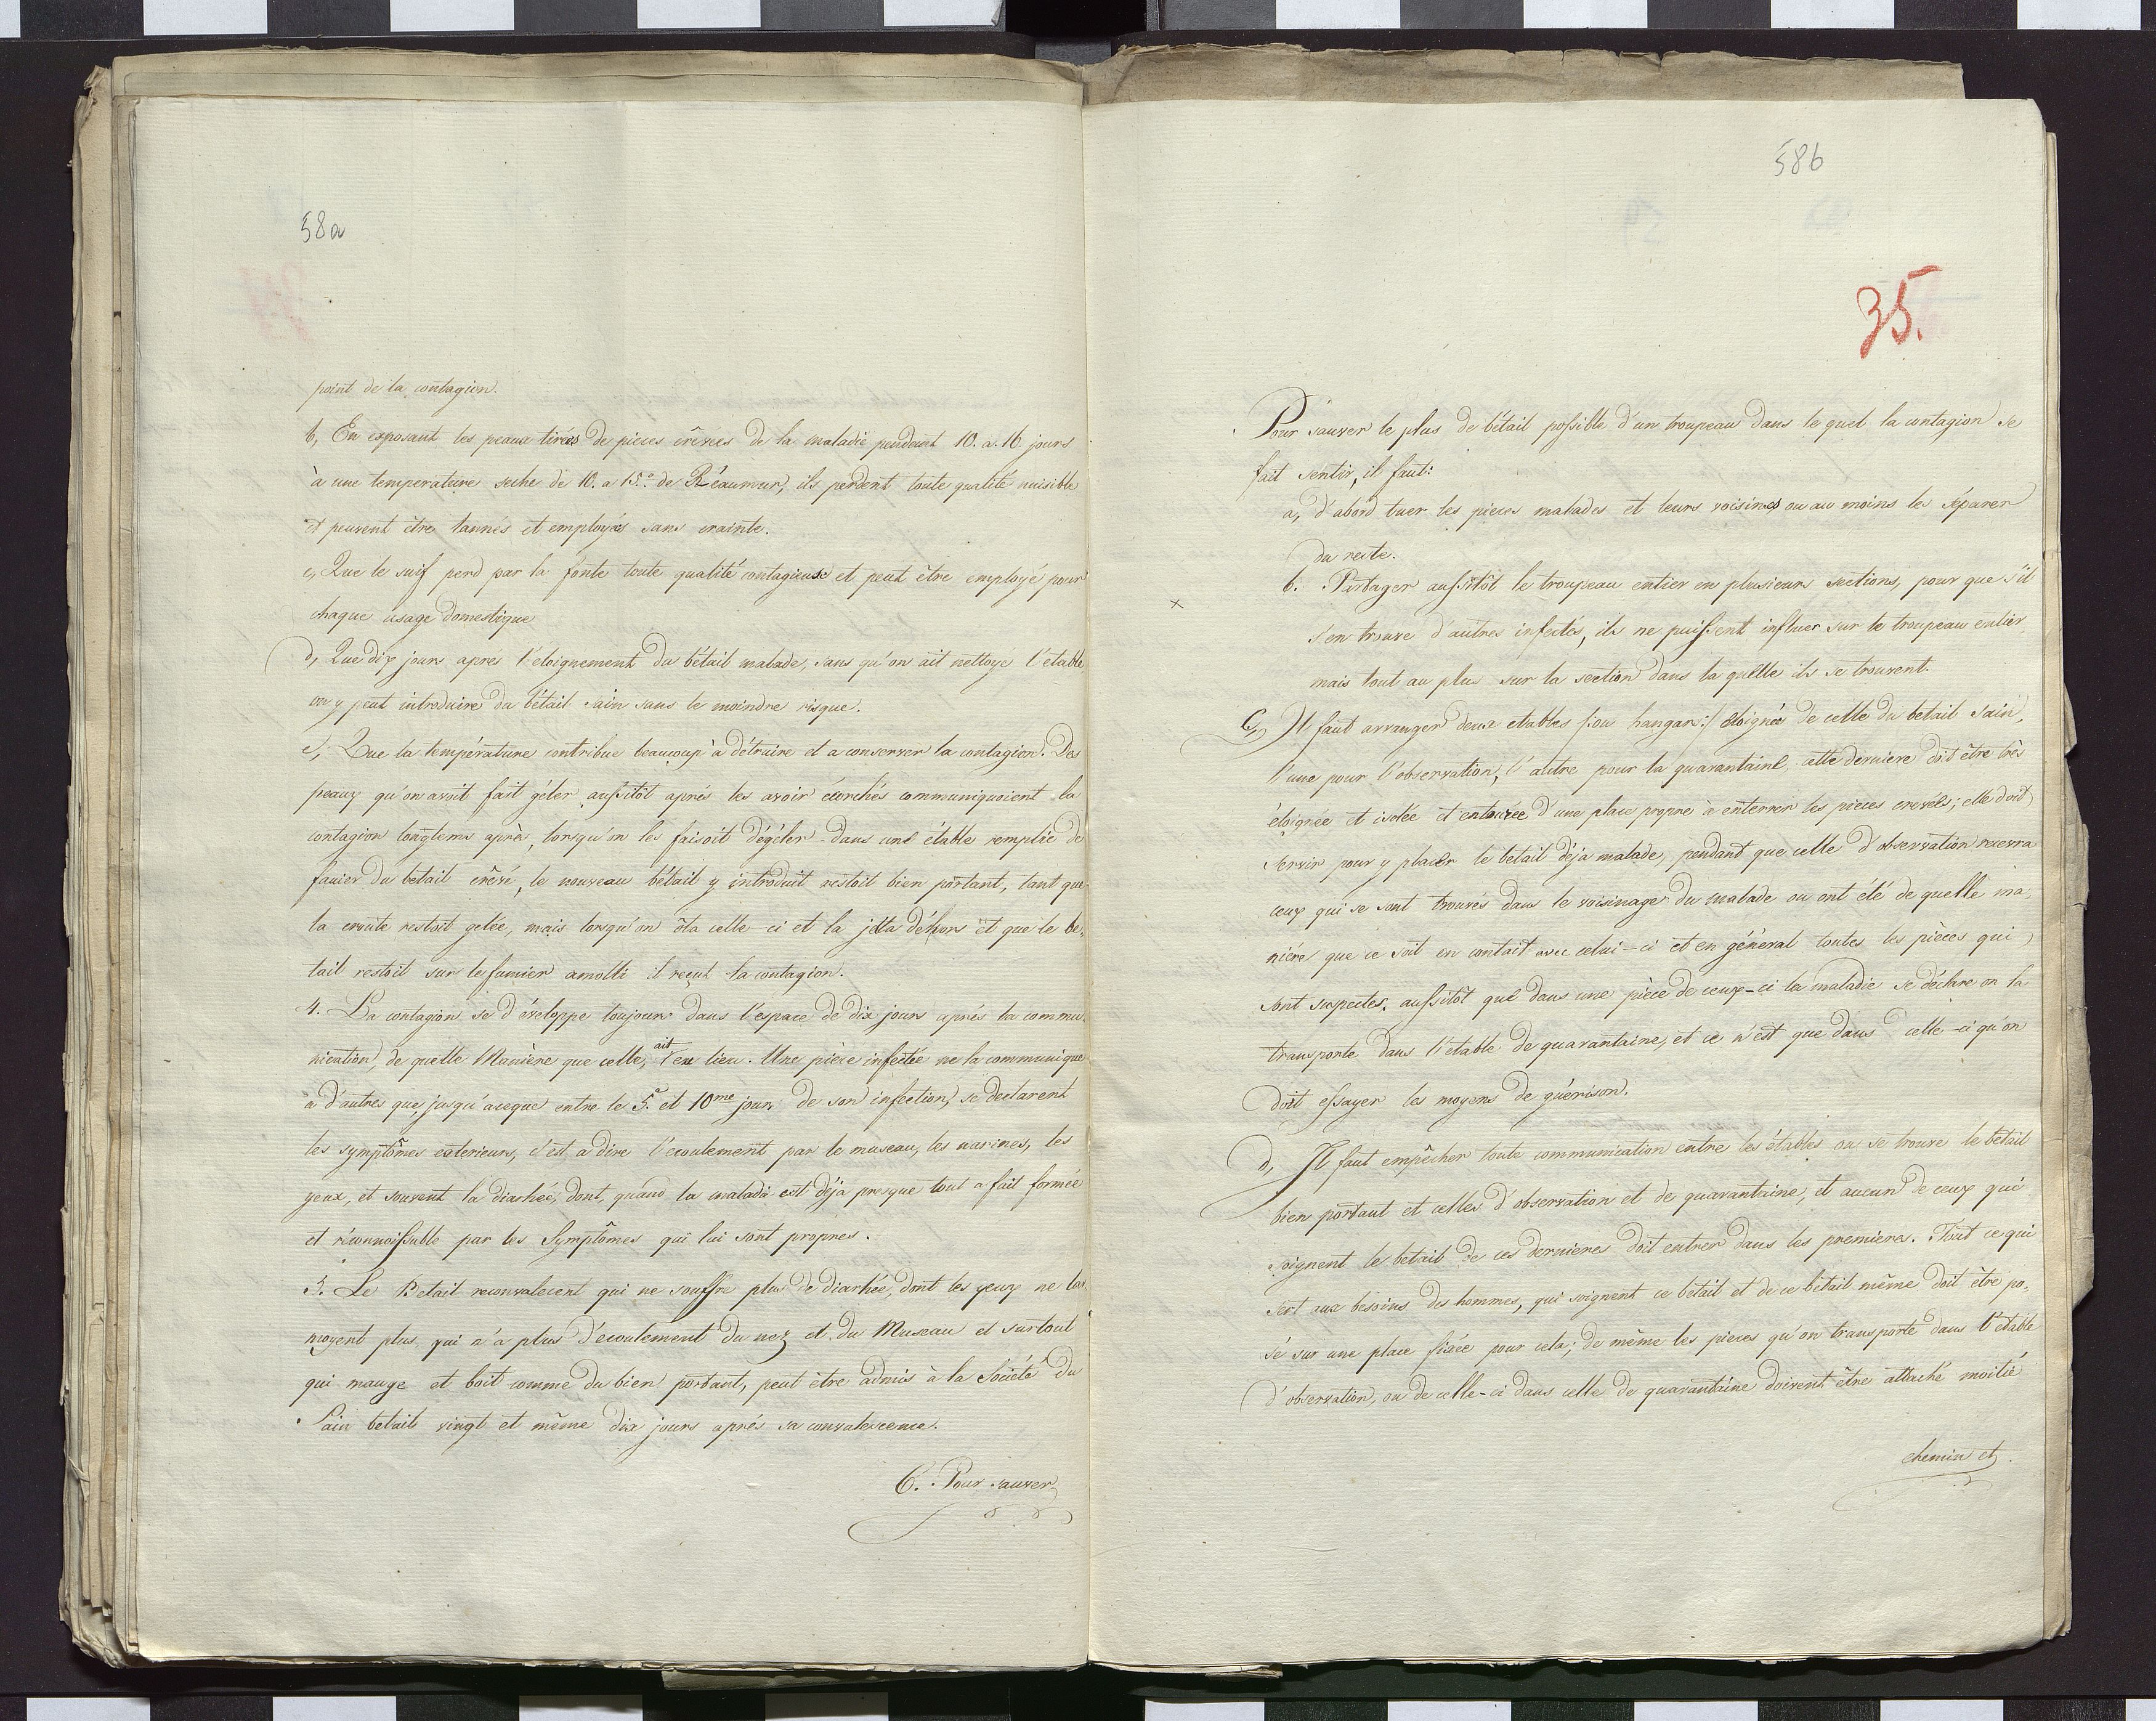 58a
point de la contagion.
b, En exposant les peaux tirées de pieces crêvées de la maladie pendant 10. a. 16 jours
à une temperature seche de 10. a 15.° de Réaumur, ils perdent toute qualité nuisible
et peuvent être tannés et employés sans crainte.
c, Que le suif perd par la fonte toute qualité contagieuse et peut être employé pour
chaque usage domestique
d, Que dix jours aprés l'éloignement du bétail malade, sans qu'on ait nettoyé l'etable
on y peut introduire du bétail sain sans le moindre risque.
e, Que la température contribue beaucoup à détruire et a conserver la contagion. Des
peaux qu'on avoit fait géler aussitôt aprés les avoir écorchés communiquoient la
contagion longtems aprés, lorsqu'on les faisoit dégéler dans une étable remplie de
fumier du bétail crêvé, le nouveau bétail y introduit restoit bien portant, tant que
la croute restoit gelée, mais lorsqu'on ôta celle-ci et la jetta déhors et que le be,
tail restoit sur le fumier amolli il reçut la contagion.
4. La contagion se développe toujours dans l'espace de dix jours aprés la commu,
nication, de quelle Manière que celle, ait eu lieu. Une pièce infectée ne la communique
a d'autres que jusqu'aceque entre le 5.e et 10me jour de son infection, se declarent
les symptômes exterieurs, c'est a dire l'ecoulement par le museau, les narines, les
yeux, et souvent la diarhée, dont, quand la maladie est déja presque tout a fait formée
et réconnoissable par les Symptômes qui lui sont propres.
5. Le Betail reconvalescent qui ne souffre plus de diarhée, dont les yeux ne lar
moyent plus, qui n'a plus d'écoulement du nez et du Museau et surtout
qui mange et boit comme du bien portant, peut être admis à la Société du
Sain betail vingt et même dix jours aprés sa convalescence.
6. Pour sauver
58b
35.
Pour sauver le plus de bétail possible d'un troupeau dans le quel la contagion se
fait sentir, il faut:
a, d'abord tuer les pieces malades et leurs voisines ou au moins les séparer
du reste.
b. Partager aussitôt le troupeau entier en plusieurs sections, pour que s'il
s'en trouve d'autres infectés, ils ne puissent influer sur le troupeau entier,
mais tout au plus sur la section dans la quelle ils se trouvent.
C, Il faut arranger deux etables /:ou hangars:/ éloignés de celle du betail sain,
l'une pour l'observation, l'autre pour la quarantaine, cette derniere doit être très
éloignée et isolée et entourée d'une place propre à enterrer les pieces crevées; elle doit
servir pour y placer le betail déja malade, pendant que celle d'observation recevra
ceux qui se sont trouvés dans le voisinage du malade ou ont été de quelle ma,
niére que ce soit en contait avec celui-ci et en général toutes les pièces qui
sont suspectes. aussitôt que dans une pièce de ceux-ci la maladie se déclare on la
transporte dans l'étable de quarantaine, et ce n'est que dans celle-ci qu'on
doit essayer les moyens de guérison.
d, Il faut empêcher toute communication entre les étables ou se trouve le betail
bien portant et celles d'observation et de quarantaine, et aucun de ceux qui
soignent le betail de ces dernieres doit entrer dans les premieres. Tout ce qui
sert aux besoins des hommes, qui soignent ce betail et de ce betail même doit être po,
sé sur une place fixée pour cela; de même les pieces qu'on transporte dans l'etable
d'observation, ou de celle-ci dans celle de quarantaine doivent être attaché moitié
chemin et